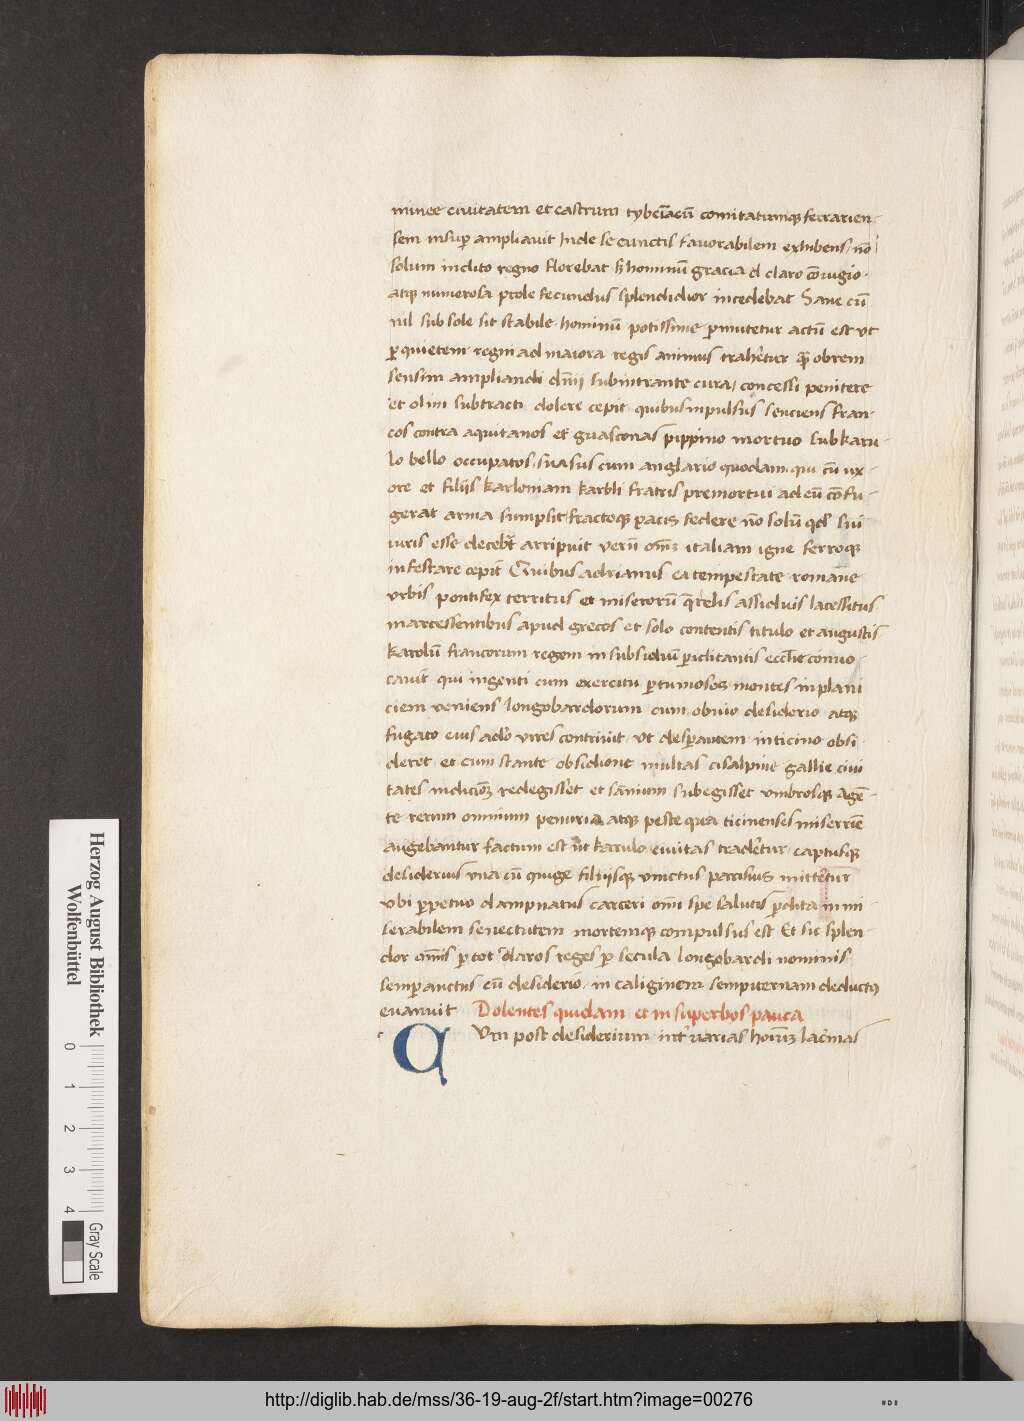 minee ciuitatem et castrum tyberiacũ comitatumqꝫ ferrarien-
sem insuꝑ ampliauit Inde se cunctis fauorabilem exhibens, nõ
solum inclito regno florebat sꝫ hominũ gracia et claro cõiugio.
atqꝫ numerosa prole fecundus splendidior incedebat Sane cũ
nil sub sole sit stabile. hominũ potissime ꝑmutetur actũ est vt
ꝑ quietem regni ad maiora regis animus trah'etur quã obrem
sensim ampliandi dñij subintrante cura, concessi penitere
et olim subtracti dolere cepit quibus inpulsus senciens fran-
cos contra aquitanos et guasconas pippino mortuo sub karu-
lo bello occupatos, suasus cum anglario quodam, qui cũ ux-
ore et filijs karlomam karoli fratris premortui ad eũ cõfu-
gerat arma sumpsit, fractoqꝫ pacis federe nõ solũ qd' sui
iuris esse deceb't arripuit verũ omẽ italiam igne ferroqꝫ
infestare cepit Quibus adrianus ea tempestate romane
vrbis pontifex territus et miserorũ q̃relis assiduis lacessitus
marcessentibus apud grecos et solo contentis titulo et augustis
Karolũ francorum regem in subsidiũ ꝑiclitantis eccl'ie conuo-
cauit qui ingenti cum exercitu ꝑ tumosos montes in plani
ciem veniens longobardorum cum obuio desiderio atqꝫ
fugato eius adeo vires contriuit. vt desꝑantem in ticino obsi
deret. et cum stante obsidione multas cisalpine gallie ciui
tates in diciõẽ redegisset et samnium subegisset vmbrosqꝫ agẽ-
te rerum omnium penuria, atqꝫ peste qua ticinenses miserrie
augebantur factum est vt karulo ciuitas trad'etur captusqꝫ
desiderius vna cũ ꝯiuge filijsqꝫ vinctus parisius mitt'etur
vbi ꝑpetuo dampnatus carceri omi spe salutis ꝑdita in mi-
serabilem senectutem mortemqꝫ compulsus est Et sic splen-
dor omnis ꝑ tot claros reges ꝑ secula longobardi nominis
semꝑ auctus cũ desiderio, in caliginem sempiternam deductꝰ
euanuit Dolentes quidam et in superbos pauca
CVm post desiderium int' varias hoĩuꝫ lac'mas
Herzog August Bibliothek
Wolfenbüttel
0 1 2 3 4
Gray Scale
http://diglib.hab.de/mss/36-19-aug-2f/start.htm?image=00276